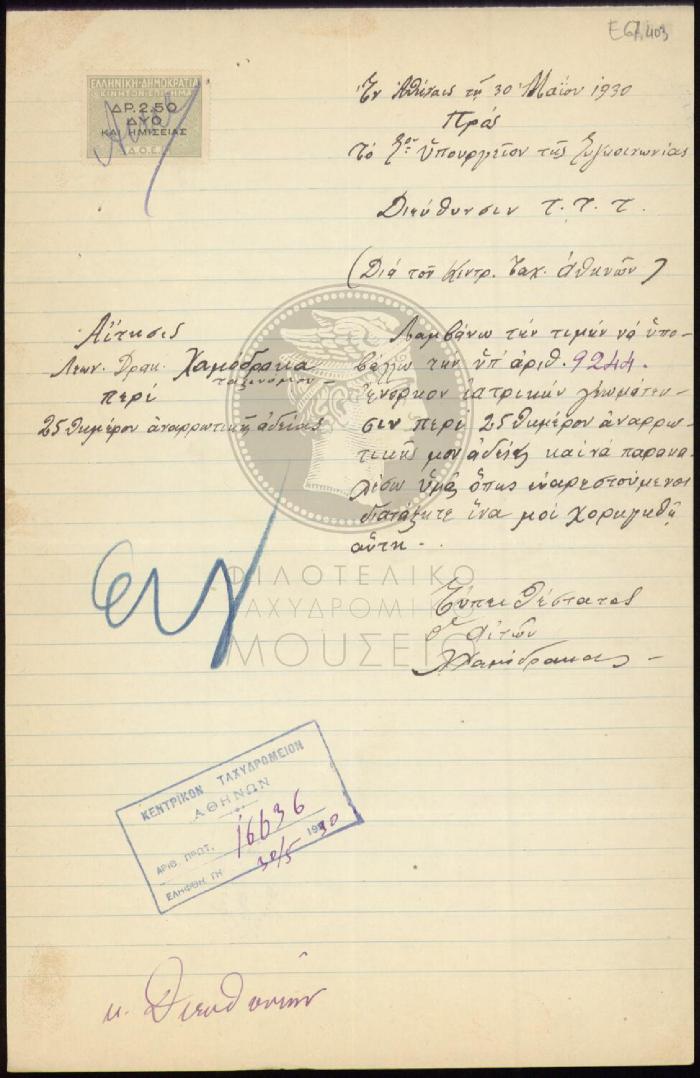 E67.403
ΕΛΛΗΝΙΚΗ ΔΗΜΟΚΡΑΤΙΑ
ΚΙΝΗΤΟΝ ΕΠΙΣΗΜΑ
ΔΡ. 2.50
ΔΥΟ
ΚΑΙ ΗΜΙΣΕΙΑΣ
Ἐν Ἀθήναις τῇ 30 Μαΐου 1930
Πρός
Τὸ Σον Ὑπουργεῖον τῆς Συγκοινωνίας
Διεύθυνσιν Τ.Τ.Τ.
(Διά τοῦ Κεντρ. Ταχ. Ἀθηνῶν)
Αἴτησις
Λεων. Δρακ. Χαμόδρακα
ταξινόμου -
περί
25θημέρου ἀναρρωτικῆς ἀδείας
Λαμβάνω τήν τιμήν νά ὑπο-
βάλλω τήν ὑπ' ἀριθ. 9244.
ἔνορκον ἰατρικήν γνωμάτευ-
σιν περί 25θημέρου ἀναρρω-
τικῆς μου ἀδείας καί νά παρακα-
λέσω ὑμᾶς ὅπως εὐαρεστούμενοι
διατάξητε ἵνα μοί χορηγηθῇ
αὕτη -.
Εὐπειθέστατος
ὁ αἰτῶν
Χαμόδρακας -
ΦΙΛΟΤΕΛΙΚΟ
ΤΑΧΥΔΡΟΜΙΚΟ
ΜΟΥΣΕΙΟ
ΚΕΝΤΡΙΚΟΝ ΤΑΧΥΔΡΟΜΕΙΟΝ
ΑΘΗΝΩΝ
ΑΡΙΘ. ΠΡΩΤ. 16636
ΕΛΗΦΘΗ ΤΗ 30/5 1930
κ. Διευθυντήν